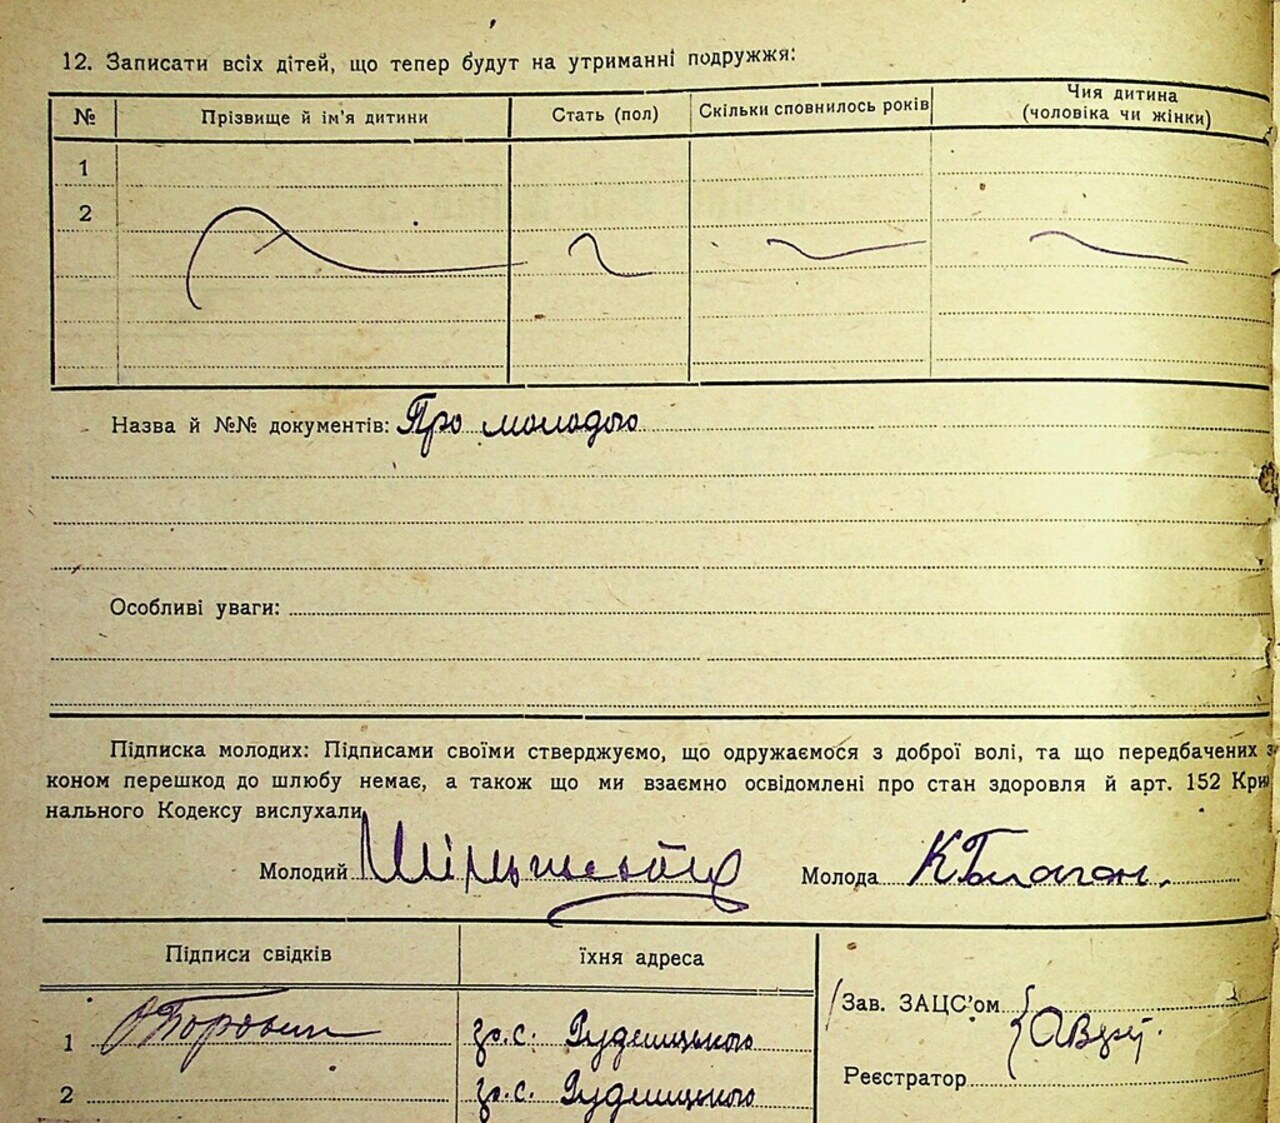 12. Записати всіх дітей, що тепер будут на утриманні подружжя:
№ Прізвище й ім'я дитини Стать (пол) Скільки сповнилось років Чия дитина (чоловіка чи жінки)
1
2
Назва й №№ документів: Про молодого
Особливі уваги:
Підписка молодих: Підписами своїми стверджуємо, що одружаємося з доброї волі, та що передбачених з
коном перешкод до шлюбу немає, а також що ми взаємно освідомлені про стан здоровля й арт. 152 Кри
нального Кодексу вислухали
Молодий Молода
Підписи свідків їхня адреса
Зав. ЗАЦС'ом
1
Реєстратор
2